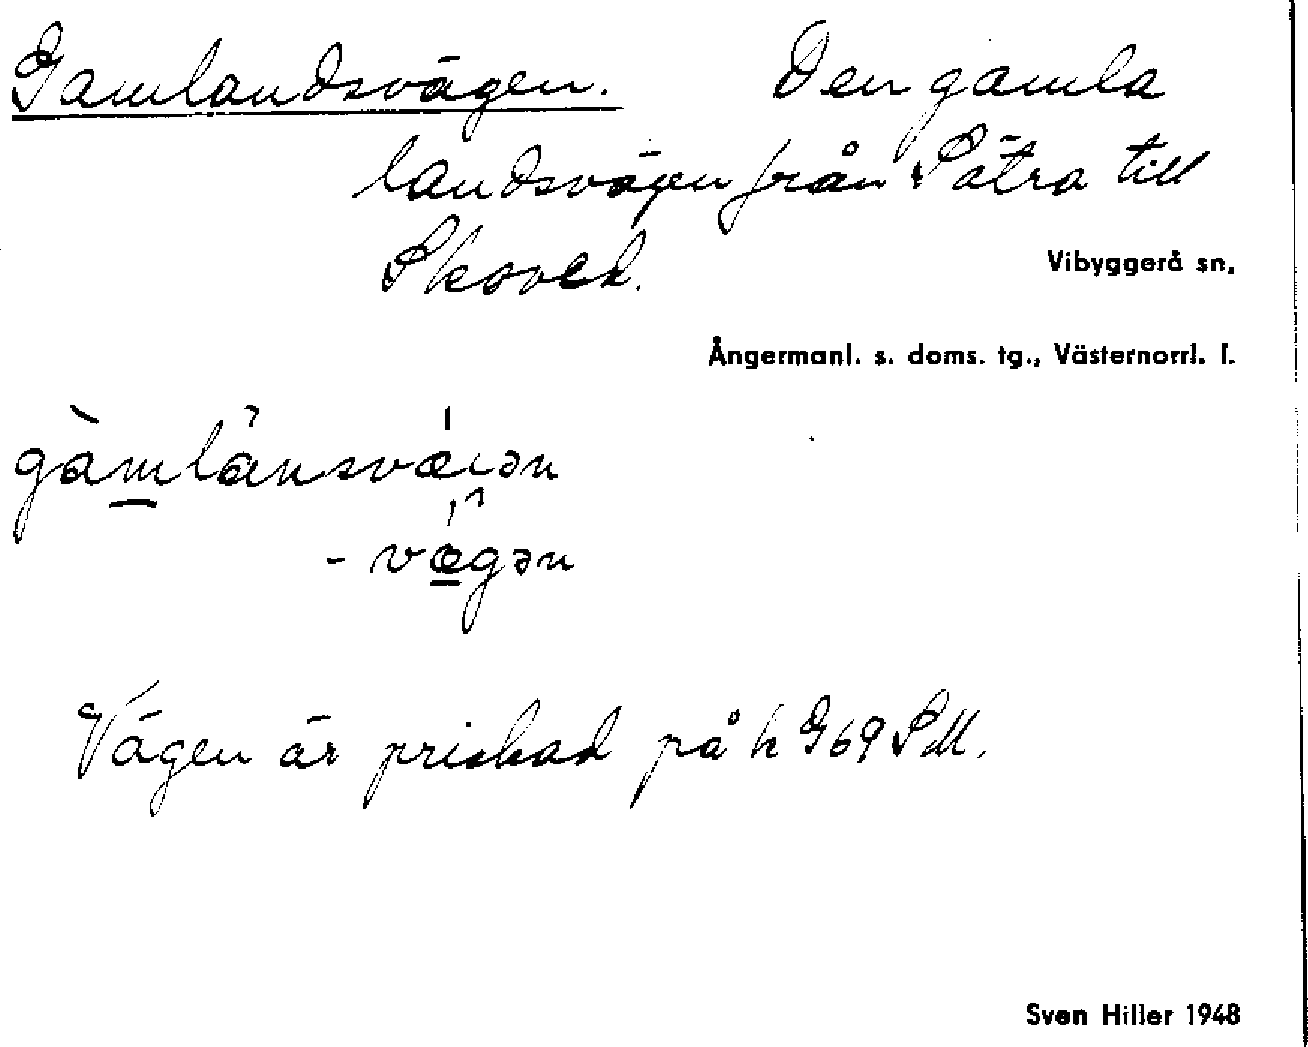 Gamlandsvägen. Den gamla
landsvägen från Sätra till
Skoved.
Vibyggerå sn.
Ångermanl. s. doms. tg., Västernorrl. l.
gàmlánsvǽɩən
- vǽgən
Vägen är prickad på h G69 SM.
Sven Hiller 1948